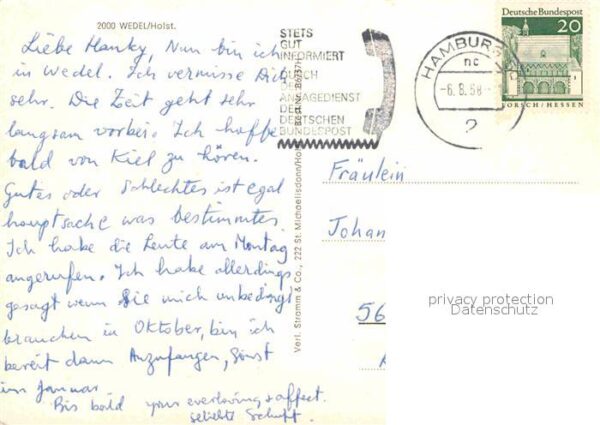 2000 WEDEL/Holst.
Liebe Hanky, Nun bin ich
in Wedel. Ich vermisse Dich
sehr. Die Zeit geht sehr
langsam vorbei. Ich hoffe
bald von Kiel zu hören.
Gutes oder Schlechtes ist egal
hauptsache was bestimmtes.
Ich habe die Leute am Montag
angerufen. Ich habe allerdings
gesagt wenn Sie mich unbedingt
brauchen in Oktober, bin ich
bereit dann Anzufangen, Sonst
im Januar
Bis bald your everloving + affect.
geliebte
STETS
GUT
INFORMIERT
DURCH
DEN
ANSAGEDIENST
DER
DEUTSCHEN
BUNDESPOST
Verl. Stramm & Co., 222 St. Michaelisdonn/Hol
HAMBURG
nc
-6.8.68
2
Deutsche Bundespost
20
LORSCH/HESSEN
Fräulein
Johan
56
privacy protection
Datenschutz